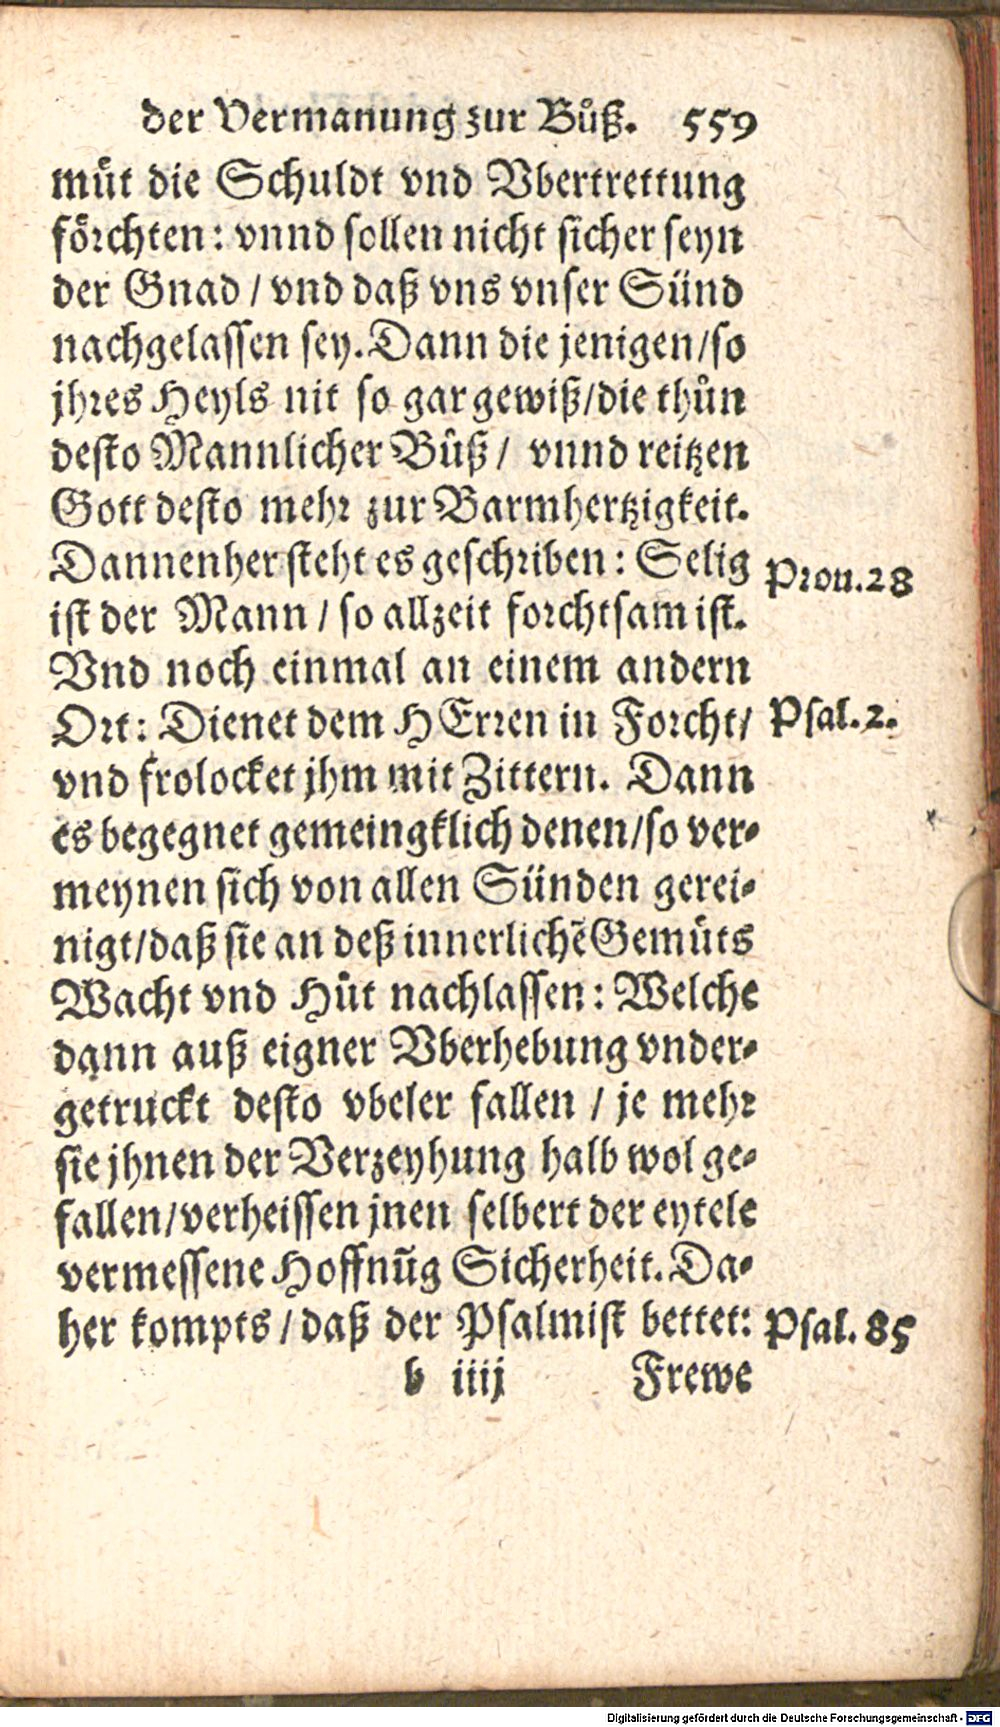 der Vermanung zur Bůß. 559
můt die Schuldt vnd Vbertrettung
förchten: vnnd sollen nicht sicher seyn
der Gnad / vnd daß vns vnser Sünd
nachgelassen sey. Dann die jenigen/so
jhres Heyls nit so gar gewiß/die thůn
desto Mannlicher Bůß / vnnd reitzen
Gott desto mehr zur Barmhertzigkeit.
Dannenher steht es geschriben: Selig Prou.28
ist der Mann / so allzeit forchtsam ist.
Vnd noch einmal an einem andern
Ort: Dienet dem HErren in Forcht/ Psal.2.
vnd frolocket jhm mit Zittern. Dann
es begegnet gemeingklich denen/so ver-
meynen sich von allen Sünden gerei-
nigt/daß sie an deß innerlichẽ Gemüts
Wacht vnd Hůt nachlassen: Welche
dann auß eigner Vberhebung vnder-
getruckt desto vbeler fallen / je mehr
sie jhnen der Verzeyhung halb wol ge-
fallen/verheissen jnen selbert der eytele
vermessene Hoffnũg Sicherheit. Da-
her kompts / daß der Psalmist bettet: Psal. 85
b iiij Frewe
Digitalisierung gefördert durch die Deutsche Forschungsgemeinschaft - DFG